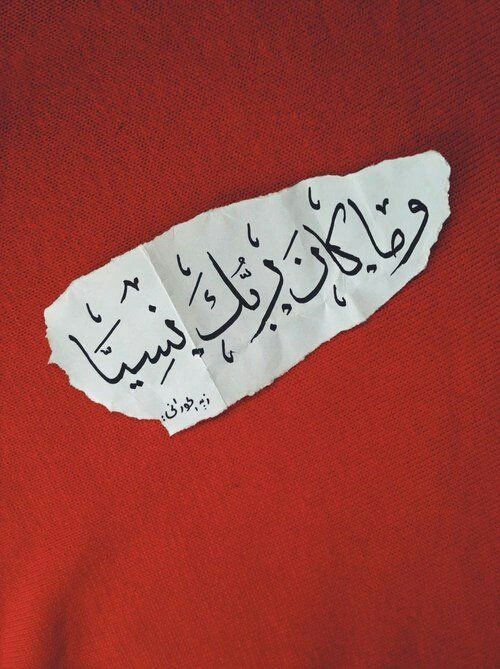 وما كان ربُّكَ نَسِيَّا